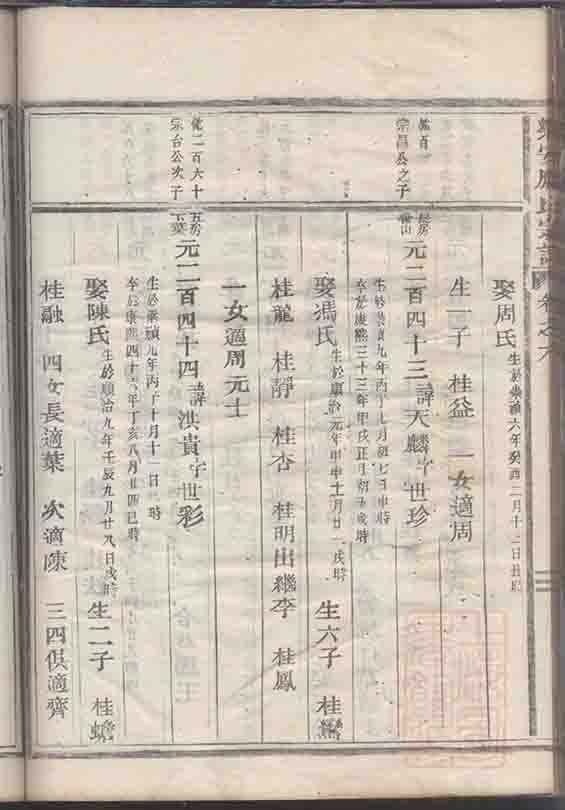 娶周氏 生於崇禎六年癸酉二月十二日丑時
生一子 桂益 一女適周
宗昌公之子
元二百四十三諱天麟字世珍
生於崇禎九年丙子 月初七日申時
卒於康熙三十三年甲戌正月初 戌時
娶馮氏 生於順治元年甲申十月廿 戌時 生六子 桂
桂龍 桂靜 桂杏 桂明出繼李 桂鳳
一女適周元士
二百六十
宗台公次子
五房
元二百四十四諱洪貴字世彩
生於崇禎九年丙子十月十一日 時
卒於康熙四十六年丁亥八月廿四巳時
娶陳氏 生於順治九年壬辰九月廿八日戌時 生二子 桂蟾
桂融 四女長適葉 次適陳 三四俱適齊